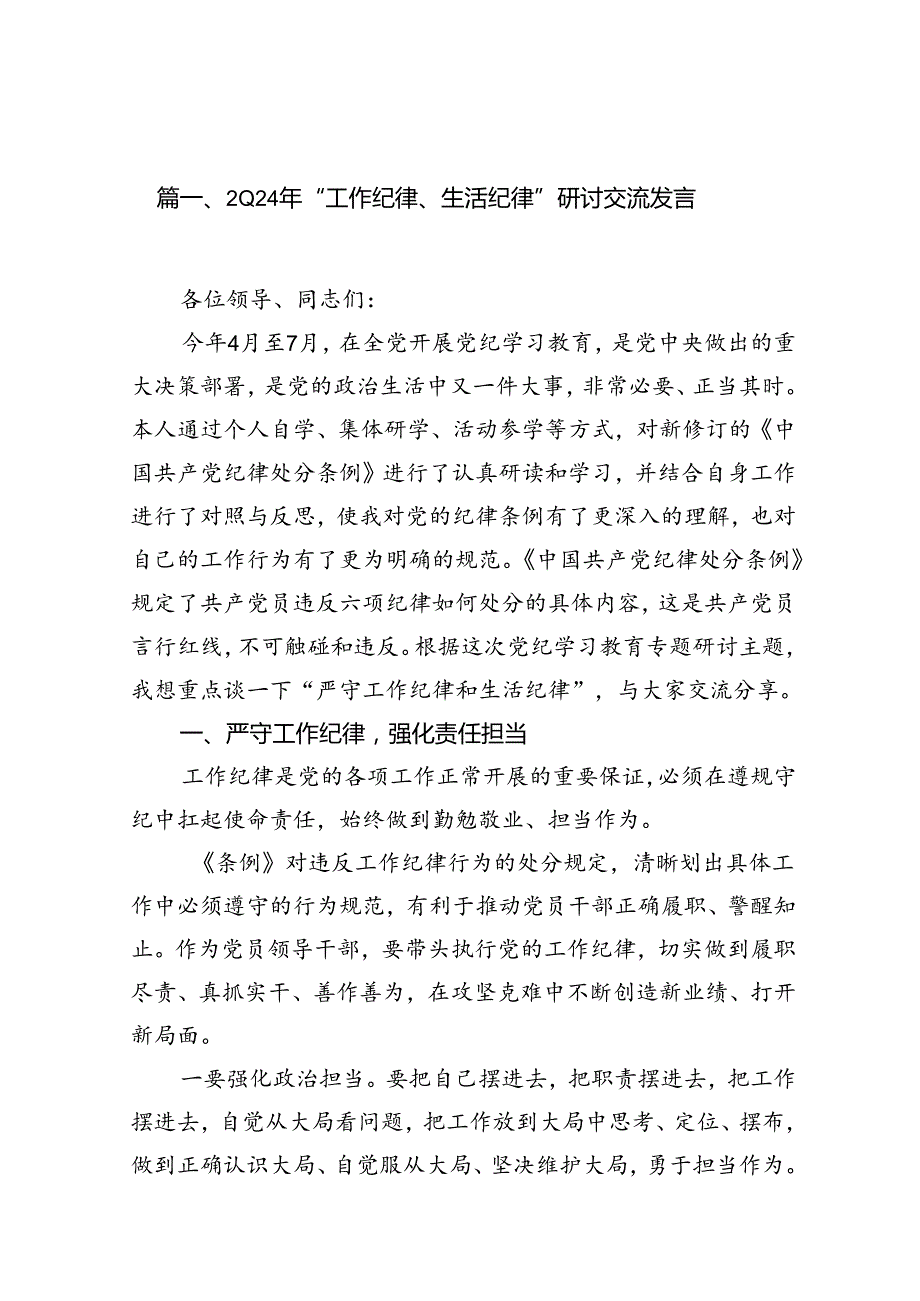 篇一、2Q24年“工作纪律、生活纪律”研讨交流发言
各位领导、同志们：
今年4月至7月，在全党开展党纪学习教育，是党中央做出的重
大决策部署，是党的政治生活中又一件大事，非常必要、正当其时。
本人通过个人自学、集体研学、活动参学等方式，对新修订的《中
国共产党纪律处分条例》进行了认真研读和学习，并结合自身工作
进行了对照与反思，使我对党的纪律条例有了更深入的理解，也对
自己的工作行为有了更为明确的规范。《中国共产党纪律处分条例》
规定了共产党员违反六项纪律如何处分的具体内容，这是共产党员
言行红线，不可触碰和违反。根据这次党纪学习教育专题研讨主题，
我想重点谈一下“严守工作纪律和生活纪律”，与大家交流分享。
一、严守工作纪律，强化责任担当
工作纪律是党的各项工作正常开展的重要保证，必须在遵规守
纪中扛起使命责任，始终做到勤勉敬业、担当作为。
《条例》对违反工作纪律行为的处分规定，清晰划出具体工
作中必须遵守的行为规范，有利于推动党员干部正确履职、警醒知
止。作为党员领导干部，要带头执行党的工作纪律，切实做到履职
尽责、真抓实干、善作善为，在攻坚克难中不断创造新业绩、打开
新局面。
一要强化政治担当。要把自己摆进去，把职责摆进去，把工作
摆进去，自觉从大局看问题，把工作放到大局中思考、定位、摆布，
做到正确认识大局、自觉服从大局、坚决维护大局，勇于担当作为。